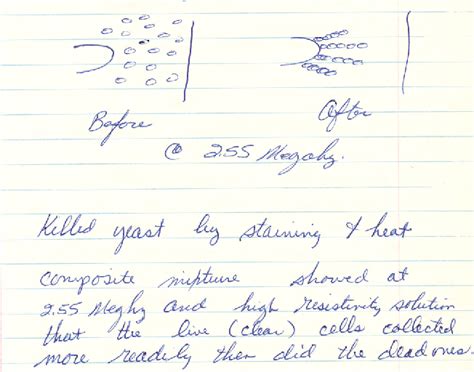 Before
After
@ 2.55 Megahz.
Killed yeast by staining & heat
composite mixture showed at
2.55 Meghz and high resistivity solution
that the live (clear) cells collected
more readily then did the dead ones.